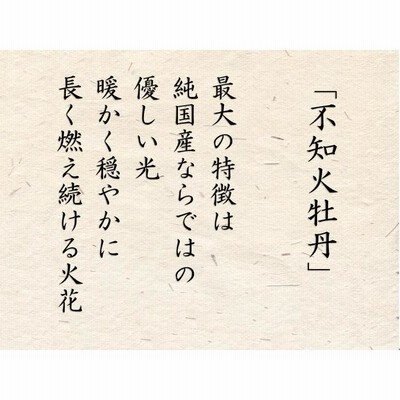 「不知火牡丹」
最大の特徴は
純国産ならではの
優しい光
暖かく穏やかに
長く燃え続ける火花